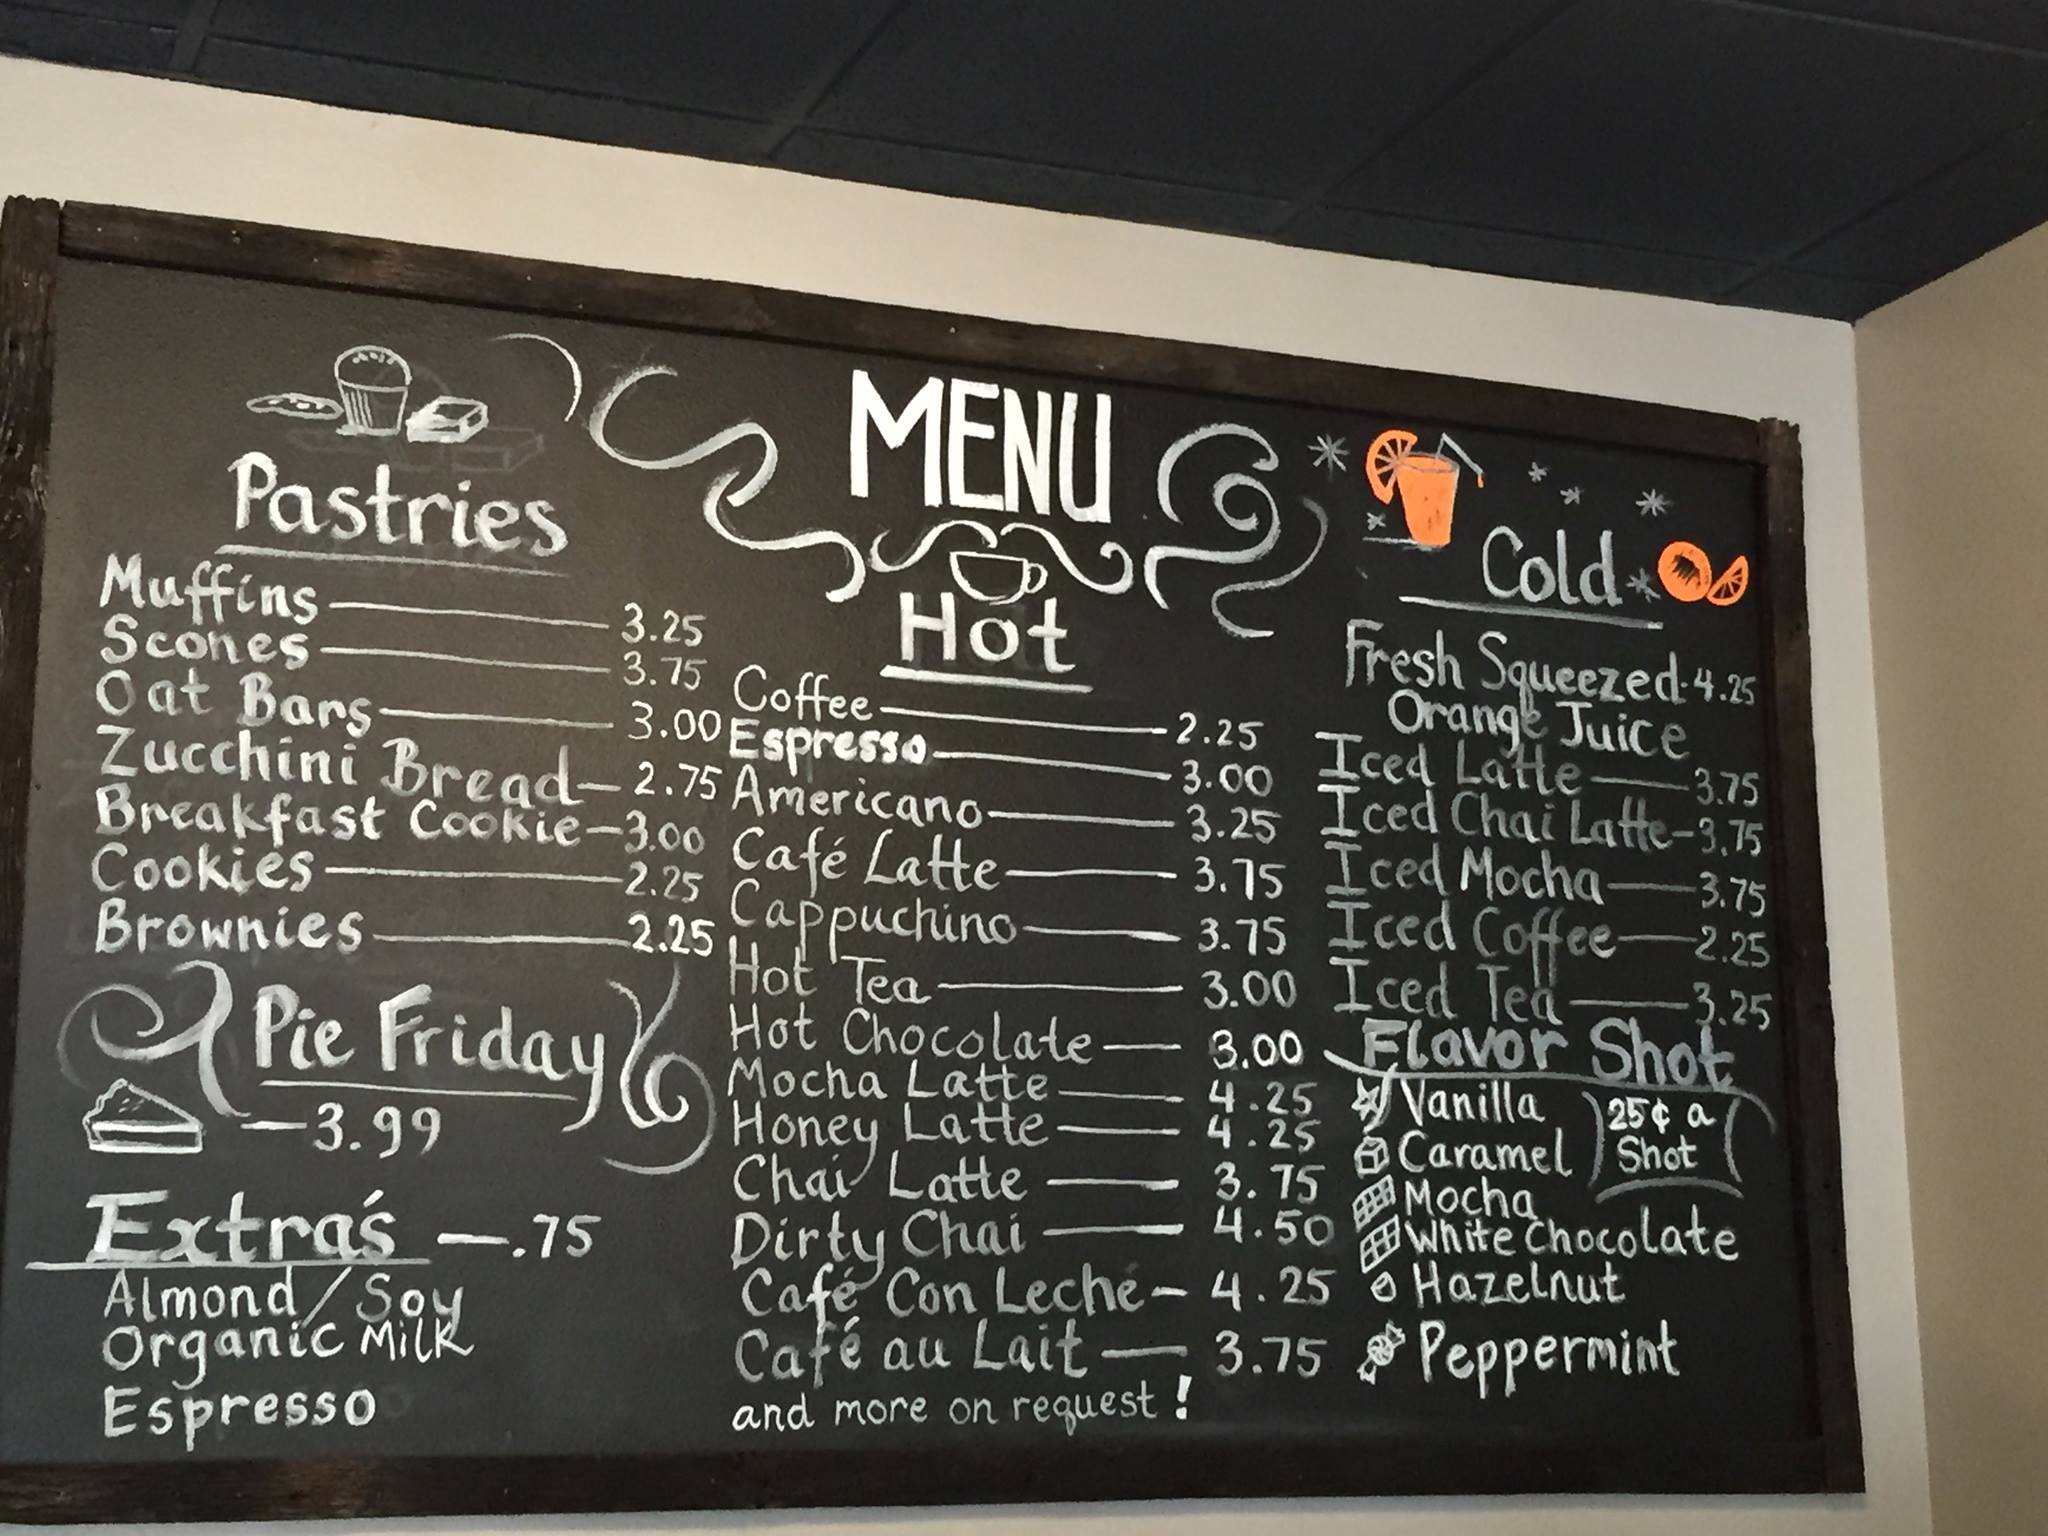 MENU
Pastries
Muffins 3.25
Scones 3.75
Oat Bars 3.00
Zucchini Bread 2.75
Breakfast Cookie 3.00
Cookies 2.25
Brownies 2.25
Pie Friday
3.99
Extra's .75
Almond/Soy
Organic Milk
Espresso
Hot
Coffee 2.25
Espresso 3.00
Americano 3.25
Café Latte 3.75
Cappuchino 3.75
Hot Tea 3.00
Hot Chocolate 3.00
Mocha Latte 4.25
Honey Latte 4.25
Chai Latte 3.75
Dirty Chai 4.50
Café Con Leché 4.25
Café au Lait 3.75
and more on request!
Cold
Fresh Squeezed 4.25
Orange Juice
Iced Latte 3.75
Iced Chai Latte 3.75
Iced Mocha 3.75
Iced Coffee 2.25
Iced Tea 3.25
Flavor Shot
25¢ a
Shot
Vanilla
Caramel
Mocha
White Chocolate
Hazelnut
Peppermint